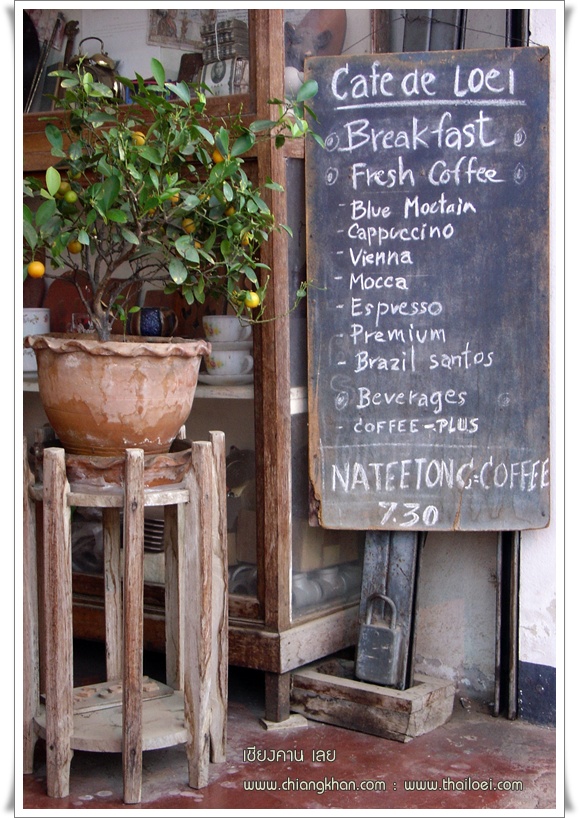 Cafe de Loei
Breakfast
Fresh Coffee
- Blue Moctain
- Cappuccino
- Vienna
- Mocca
- Espresso
- Premium
- Brazil santos
Beverages
- COFFEE-PLUS
NATEETONG:COFFEE
7.30
เชียงคาน เลย
www.chiangkhan.com : www.thailoei.com